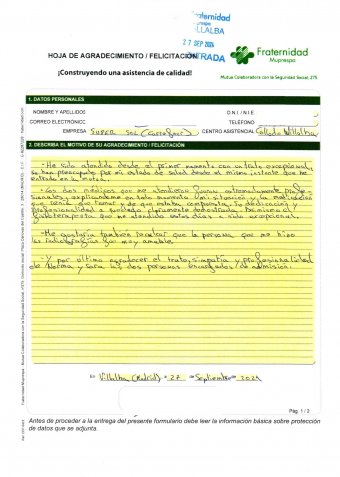 Fraternidad
Muprespa
VILLALBA
27 SEP 2024
ENTRADA
Fraternidad
Muprespa
HOJA DE AGRADECIMIENTO / FELICITACIÓN
¡Construyendo una asistencia de calidad!
Mutua Colaboradora con la Seguridad Social, 275
1. DATOS PERSONALES
NOMBRE Y APELLIDOS
D.N.I. / N.I.E.
CORREO ELECTRÓNICO
TELÉFONO
EMPRESA SUPER SOL (Carrefour)
CENTRO ASISTENCIAL Collado Villalba
2. DESCRIBA EL MOTIVO DE SU AGRADECIMIENTO / FELICITACIÓN
- He sido atendido desde el primer momento con un trato excepcional,
se han preocupado por mi estado de salud desde el mismo instante que he
entrado en la mutua.
- Los dos médicos que me atendieron fueron extremadamente profe-
sionales, explicándome en todo momento mi situación y la medicación
que tenía que tomar y de que estaba compuesta. Su dedicación y
profesionalidad a quedado claramente demostrada. Asimismo el
fisioterapeuta que me atendido estos días a sido excepcional.
- Me gustaría también recalcar que la persona que me hizo
las radiografías fue muy amable.
- Y por último agradecer el trato, simpatía y profesionalidad
de Norma y Sara las dos personas encargadas de admisión.
En Villalba (Madrid) a 27 de Septiembre 2024
Pág. 1 / 2
Antes de proceder a la entrega del presente formulario debe leer la información básica sobre protección
de datos que se adjunta.